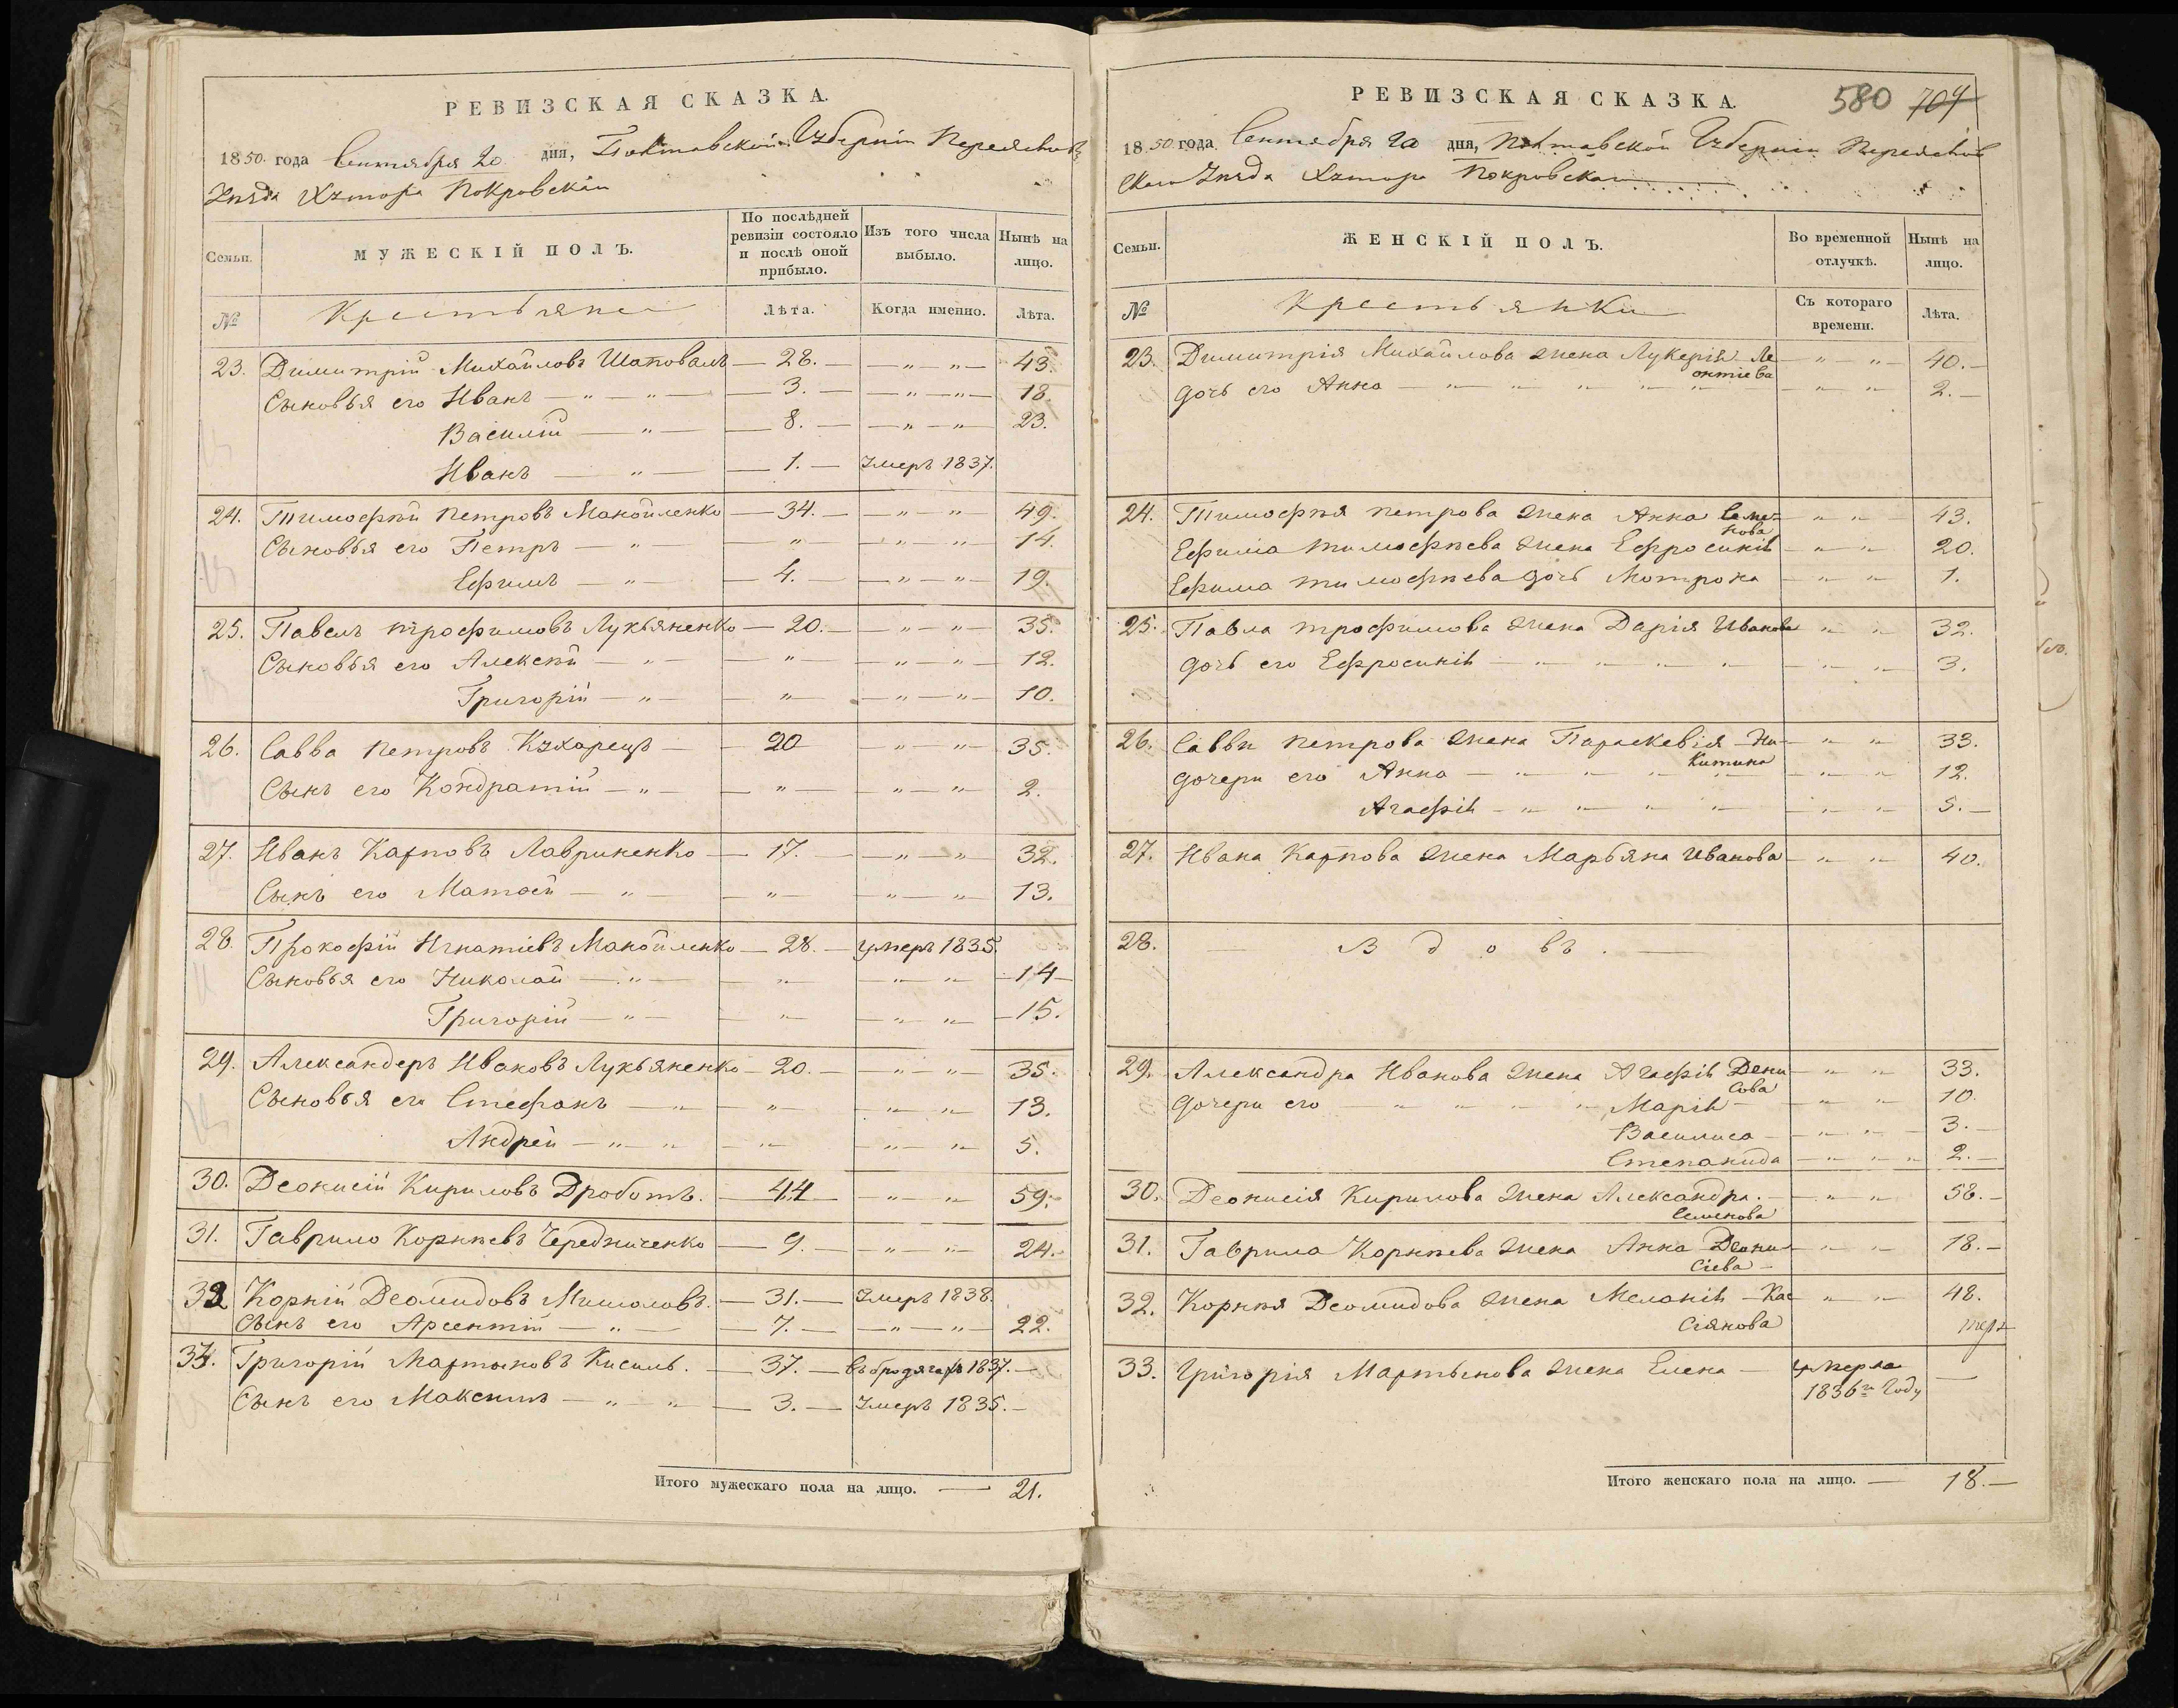 РЕВИЗСКАЯ СКАЗКА.
1850. года Сентября 20 дня, Полтавской Губерніи Переяслов
Уѣзда Хутора Покровскаго
Семьи.
МУЖЕСКІЙ ПОЛЪ.
По послѣдней ревизіи состояло и послѣ оной прибыло.
Изъ того числа выбыло.
Нынѣ на лицо.
№
Крестьяне
Лѣта.
Когда именно.
Лѣта.
23. Димитрій Михайловъ Шаповалъ — 28. — — „ — „ — 43.
Сыновья его Иванъ — „ — „ — — 3. — — „ — „ — 18.
Василій — „ — — 8. — — „ — „ 23.
Иванъ — „ — — 1. — Умеръ 1837.
24. Тимофѣй Петровъ Манойленко — 34. — — „ — „ — 49.
Сыновья его Петръ — „ — „ — — „ — „ — 14.
Ефимъ — „ — — 4. — — „ — „ — 19.
25. Павелъ Трофимовъ Лукьяненко — 20. — — „ — „ — 35.
Сыновья его Алексѣй — „ — — „ — — „ — „ — 12.
Григорій — „ — — „ — — „ — „ — 10.
26. Савва Петровъ Кухарецъ — 20 — „ — „ — 35.
Сынъ его Кондратій — „ — — „ — — „ — „ — 2.
27. Иванъ Карповъ Лавриненко — 17. — — „ — „ — 32.
Сынъ его Матвей — „ — — „ — — „ — „ — 13.
28. Прокофій Игнатіевъ Манойленко — 28. — умеръ 1835.
Сыновья его Николай — „ — — „ — — „ — „ — 14 —
Григорій — „ — — „ — — „ — „ — 15.
29. Александеръ Ивановъ Лукьяненко — 20. — — „ — „ — 35.
Сыновья его Стефанъ — „ — — „ — — „ — „ — 13.
Андрей — „ — „ — „ — — „ — „ — 5.
30. Деонисій Кириловъ Дроботъ. — 44 — — „ — „ — 59.
31. Гаврило Корнѣевъ Чередниченко — 9. — — „ — „ — 24.
32 Корній Деомидовъ Мишоловъ. — 31. — Умеръ 1838.
Сынъ его Арсентій — „ — — 7. — — „ — „ — 22.
33. Григорій Мартыновъ Кисиль. — 37. — въ бродягахъ 1837. —
Сынъ его Максимъ — „ — „ — 3. — Умеръ 1835. —
Итого мужескаго пола на лицо. — 21.
РЕВИЗСКАЯ СКАЗКА.
580 704
1850 года Сентября 20 дня, Полтавской Губерніи Переяслов
скаго Уѣзда Хутора Покровскаго
Семьи.
ЖЕНСКІЙ ПОЛЪ.
Во временной отлучкѣ.
Нынѣ на лицо.
№
Крестьянки
Съ котораго времени.
Лѣта.
23. Димитрія Михайлова жена Лукерія Ле — „ „ — 40. —
онтіева
дочь его Анна — „ — „ „ „ „ — „ „ 2. —
24. Тимофѣя Петрова жена Анна Семе= — „ „ — 43.
нова
Ефима Тимофѣева жена Ефросинія — „ „ 20.
Ефима Тимофѣева дочь Мотрона — „ „ 1.
25. Павла Трофимова жена Дарія Иванова „ „ 32.
дочь его Ефросинія — „ — „ — „ — „ — „ „ 3.
26. Саввы Петрова жена Параскевія Ни — „ „ 33.
китина
дочери его Анна — „ — „ „ „ — „ „ 12.
Агафія — „ „ „ „ — „ „ 5. —
27. Ивана Карпова жена Марьяна Иванова — „ „ 40.
28. — В д о въ. —
29. Александра Иванова жена Агафія Дени — „ „ 33.
сова
дочери его — „ „ „ „ Марія — „ „ 10.
Василиса — „ „ — 3. —
Степанида — „ „ 2. —
30. Деонисія Кирилова жена Александра. — „ „ 58. —
Семенова
31. Гаврила Корнѣева жена Анна Деони — „ „ 18. —
сіева —
32. Корнѣя Деомидова жена Меланія — Кас „ „ 48.
сіянова
33. Григорія Мартынова жена Елена — умерла —
1836го Году
Итого женскаго пола на лицо. — 18. —